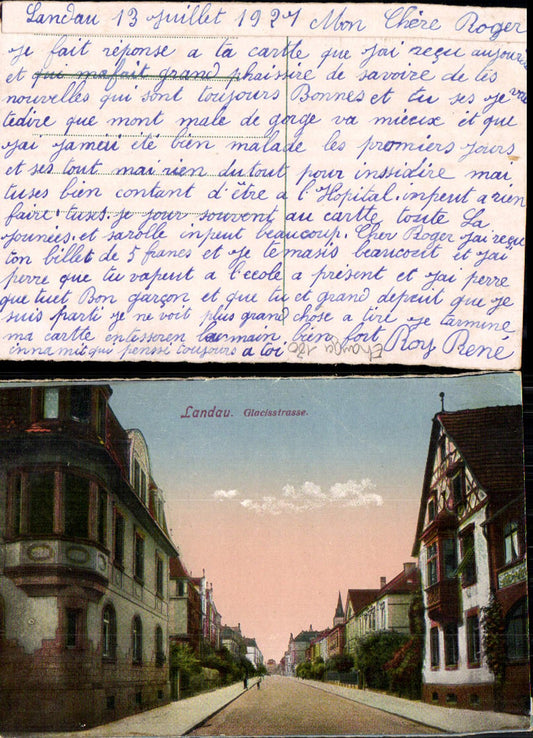 Landau 13 Juillet 1921 Mon Chère Roger
Je fait réponse a ta cartte que j'ai reçu aujourd
et qui mafait grand phaissire de savoire de tes
nouvelles qui sont toujours Bonnes et tu ses je vai
tedire que mont male de gorge va mieux et que
j'ai jameu été bien malade les promiers jours
et ses tout mai rien du tout pour inssidire mai
tuses bien contant d'être a l'Hopital inpeut a rien
faire tuses je jour souvent au cartte toute La
jounées et sarolle inpeut beaucoup. Cher Roger j'ai reçu
ton billet de 5 francs et je temasis beaucout et j'ai
perre que tu vapeut a l'ecole a présent et j'ai perre
que tuet Bon garçon et que tu et grand depeut que je
suis parti je ne voit plus grand chose a tire je tarmine
ma cartte entesseren lamain bien fort Roy René
innamit qui pensse toujours a toi
Landau. Glacisstrasse.